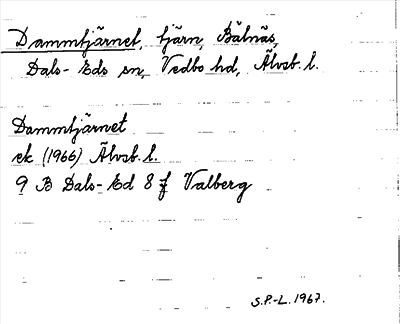 Dammtjärnet, tjärn, Bälnäs,
Dals-Eds sn, Vedbo hd, Älvsb. l.
Dammtjärnet
ek (1966) Älvsb. l.
9 B Dals-Ed 8 f Valberg
S.P.-L. 1967.